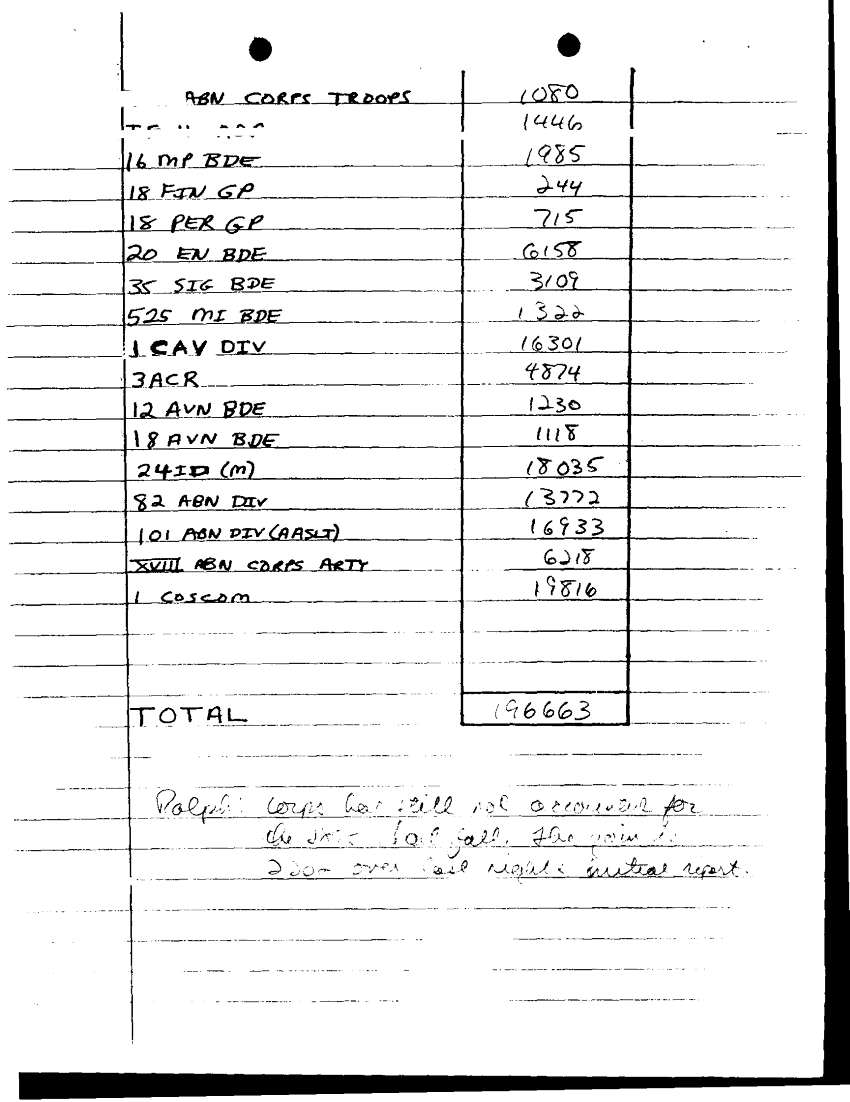 ABN CORPS TROOPS 1080
1446
16 MP BDE 1985
18 FIN GP 244
18 PER GP 715
20 EN BDE 6158
35 SIG BDE 3109
525 MI BDE 1322
1 CAV DIV 16301
3ACR 4874
12 AVN BDE 1230
18 AVN BDE 1118
24ID (M) 18035
82 ABN DIV 13772
101 ABN DIV (AASLT) 16933
XVIII ABN CORPS ARTY 6218
1 COSCOM 19816
TOTAL 196663
Ralph: Corps has still not accounted for
the fall. The gain is
over last night's initial report.